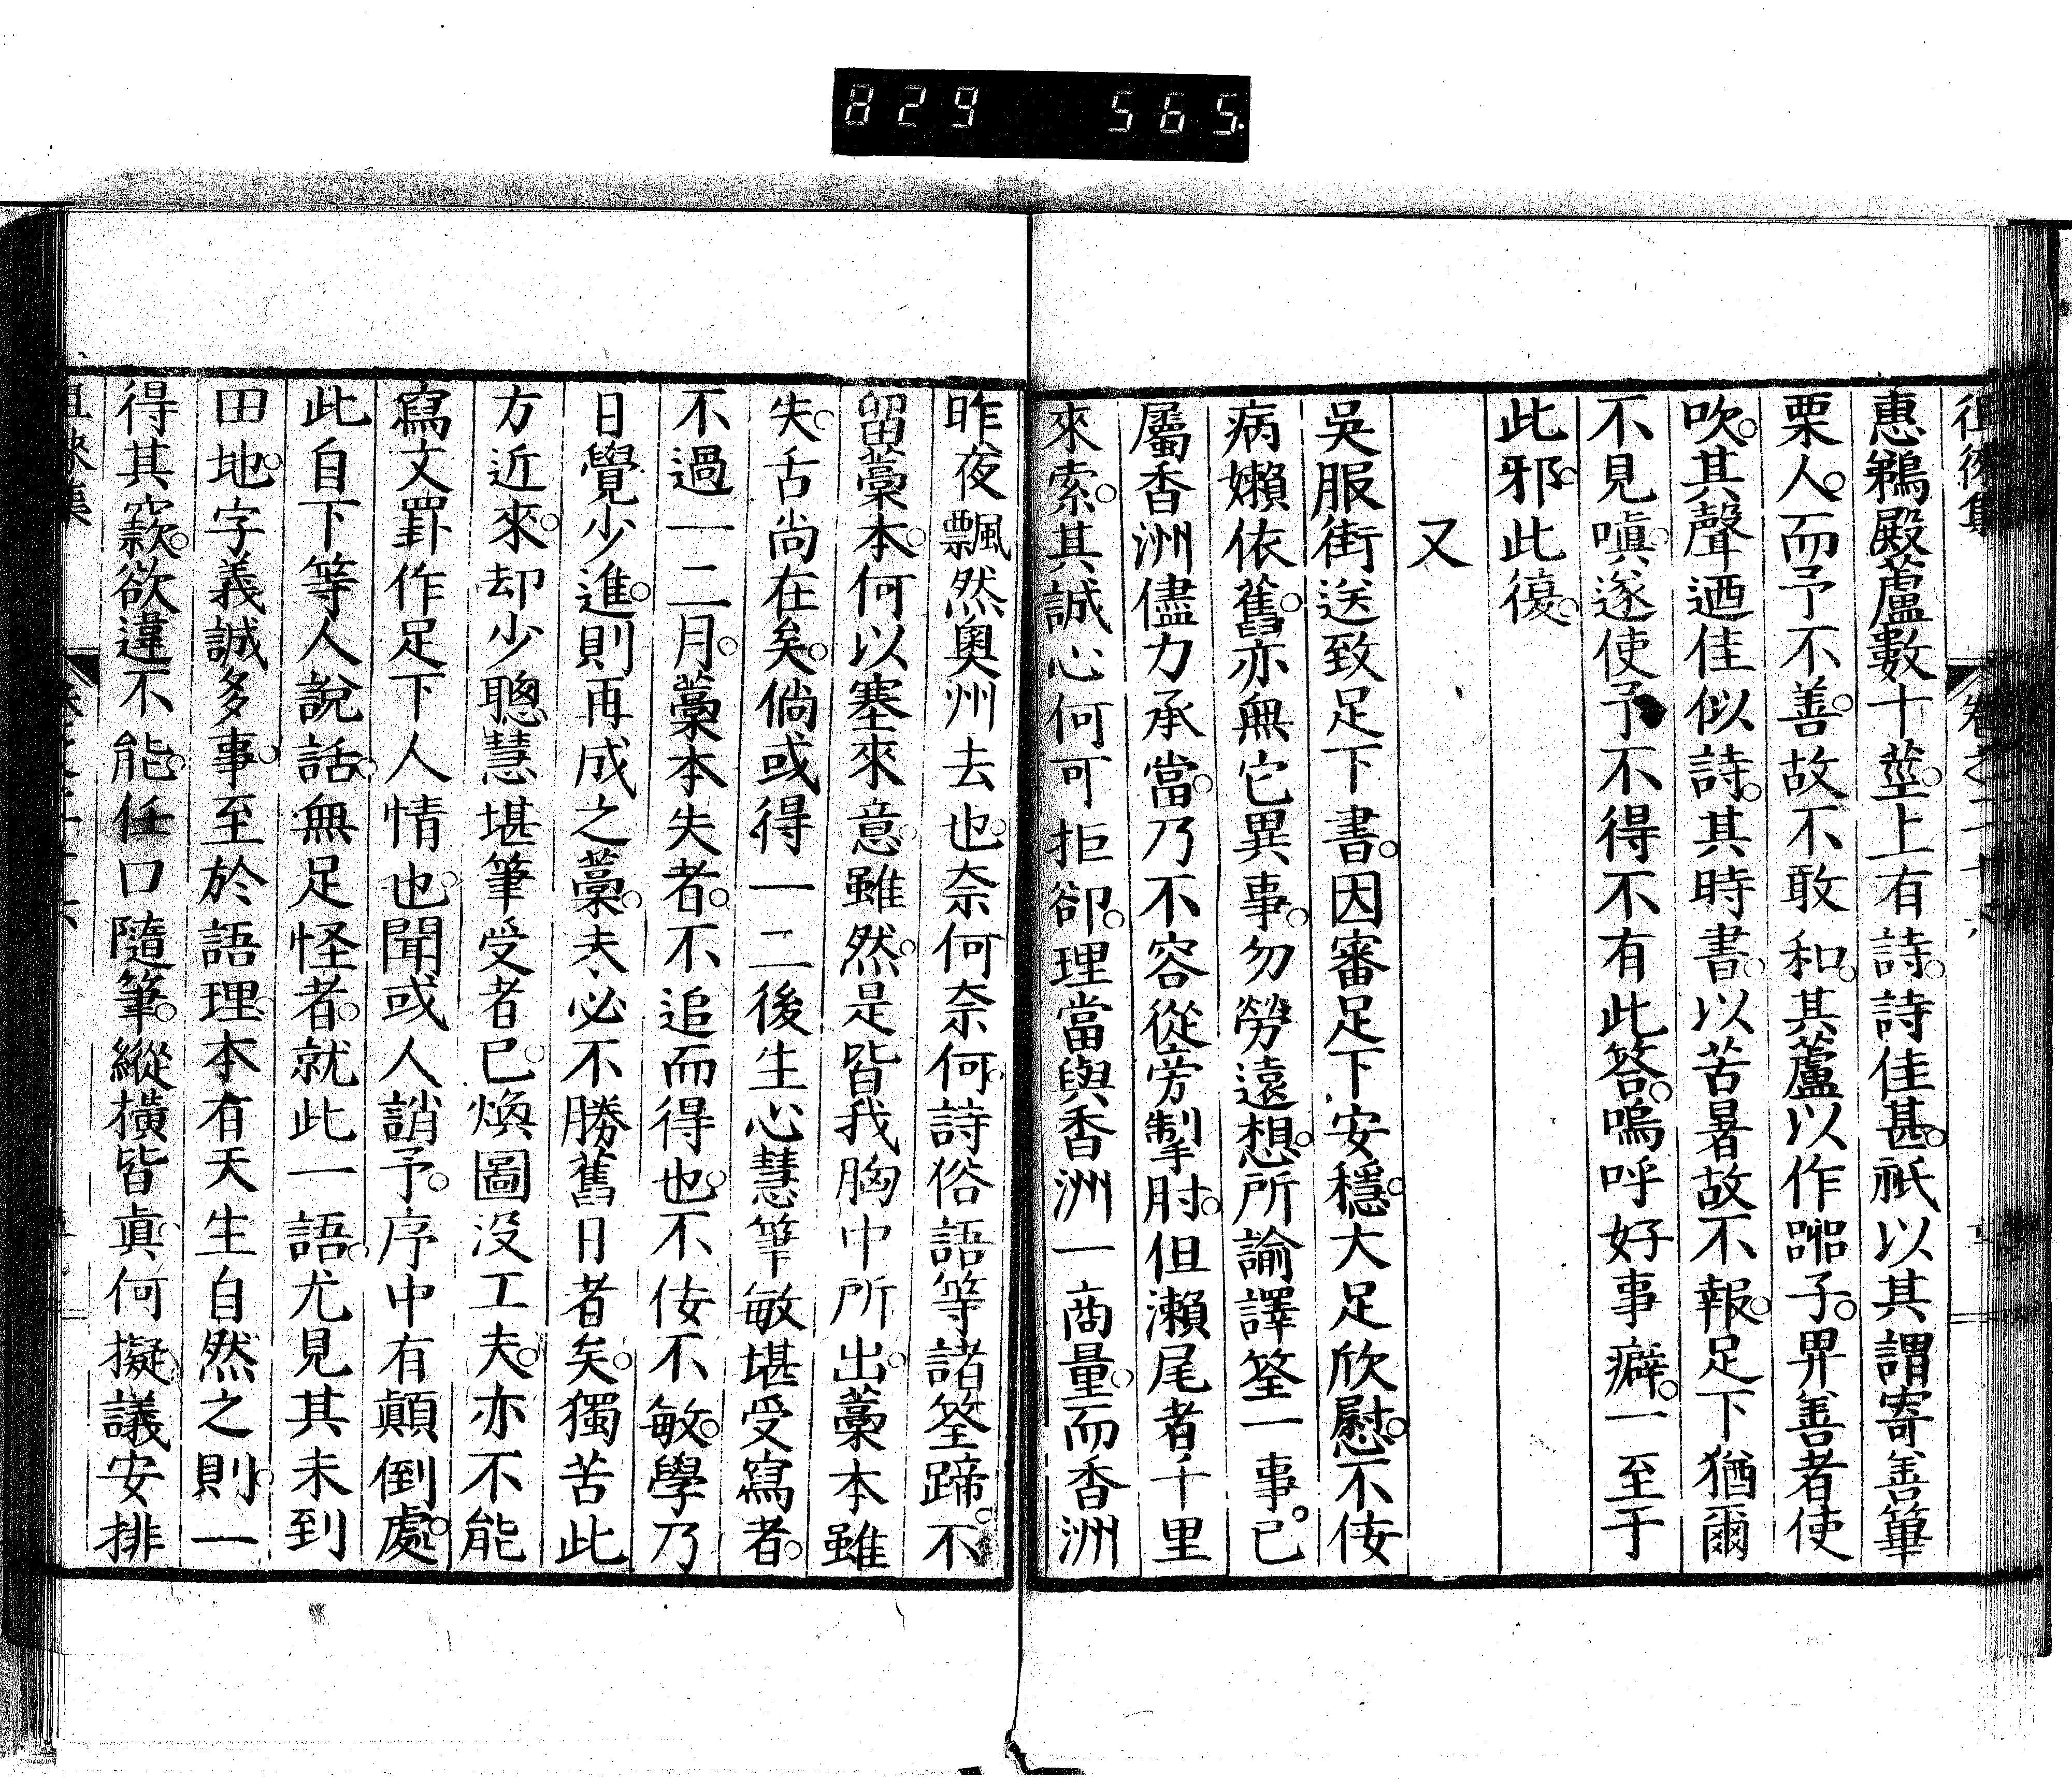 829 565
徂徠集 卷之二十六
惠鵜殿蘆數十莖。上有詩。詩佳甚。祇以其謂寄善篳
栗人。而予不善。故不敢和。其蘆以作㗸子。畀善者使
吹。其聲迺佳似詩。其時書。以苦暑故不報。足下猶爾
不見嗔。遂使予不得不有此答。嗚呼好事癖。一至于
此邪。此復。
又
吳服街送致足下書。因審足下安穩。大足欣慰。不佞
病嬾依舊。亦無它異事。勿勞遠想。所諭譯筌一事。已
屬香洲儘力承當。乃不容從旁掣肘。但瀨尾者千里
來索。其誠心何可拒卻。理當與香洲一商量。而香洲
昨夜飄然奧州去也。奈何奈何。詩俗語等諸筌蹄。不
留藁本。何以塞來意。雖然。是皆我胸中所出。藁本雖
失。舌尚在矣。倘或得一二後生心慧筆敏堪受寫者。
不過一二月。藁本失者。不追而得也。不佞不敏。學乃
日覺少進。則再成之藁。夫必不勝舊日者矣。獨苦此
方近來。却少聰慧堪筆受者。已煥圖沒工夫。亦不能
寫文罫作足下人情也。聞或人誚予。序中有顛倒處。
此自下等人說話。無足怪者。就此一語。尤見其未到
田地。字義誠多事。至於語理。本有天生自然之則。一
得其窾。欲違不能。任口隨筆。縱橫皆眞。何擬議安排
徂徠集